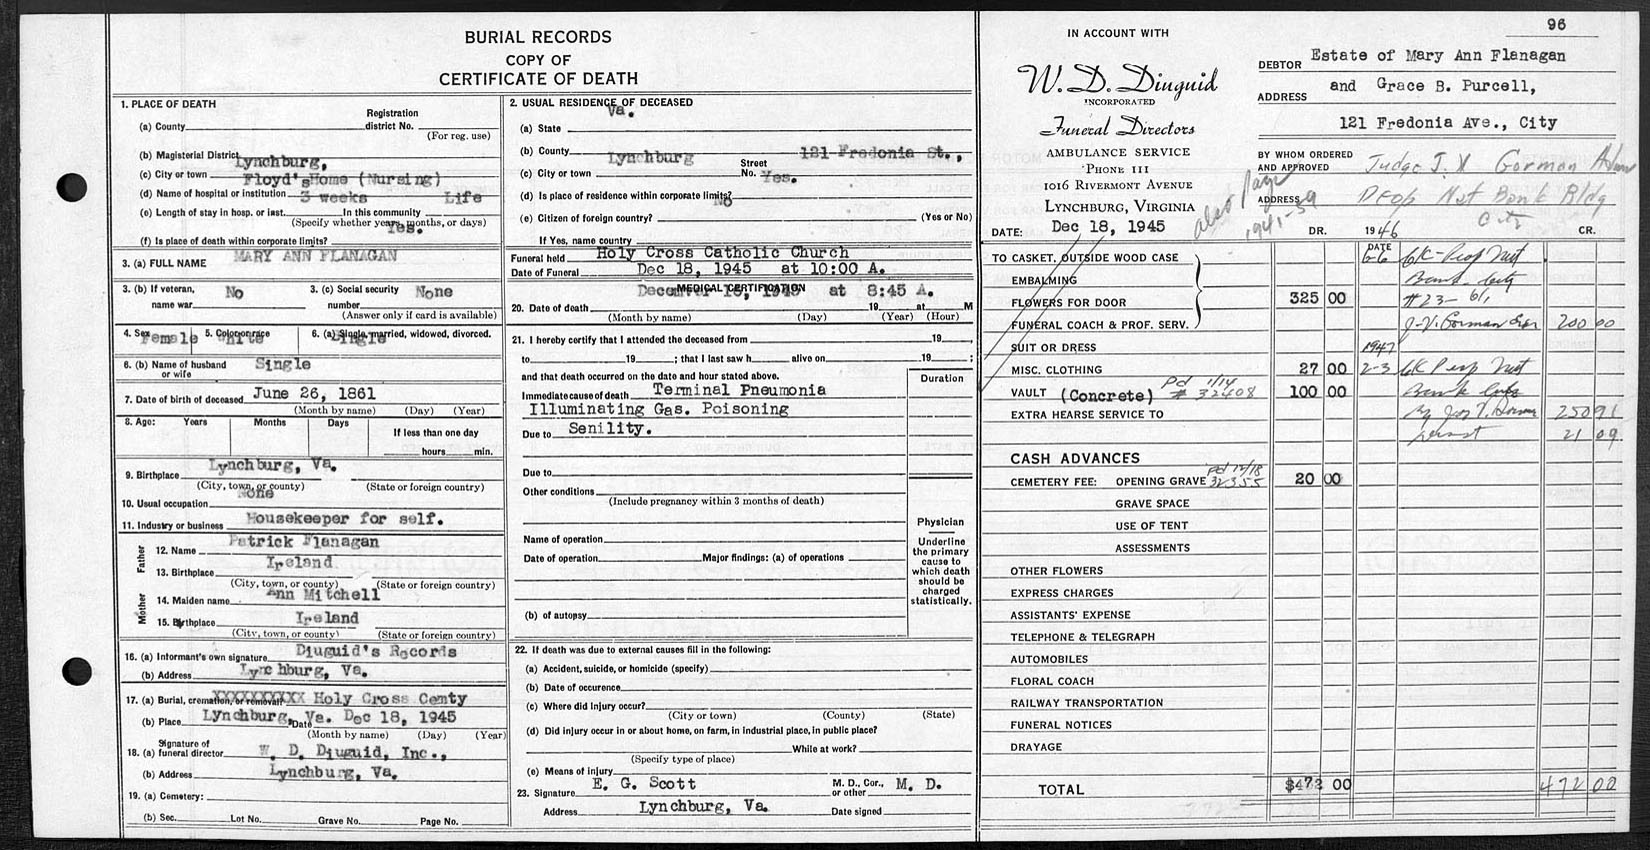 BURIAL RECORDS
COPY OF
CERTIFICATE OF DEATH
1. PLACE OF DEATH
(a) County
Registration
district No.
(For reg. use)
(b) Magisterial District
Lynchburg,
(c) City or town
Floyd's Home (Nursing)
(d) Name of hospital or institution
3 weeks Life
(e) Length of stay in hosp. or inst. In this community
(Specify whether years, months, or days)
Yes.
(f) Is place of death within corporate limits?
3. (a) FULL NAME MARY ANN FLANAGAN
3. (b) If veteran,
name war No
3. (c) Social security
number None
(Answer only if card is available)
4. Sex Female 5. Color or race White 6. (a) Single, married, widowed, divorced. Single
6. (b) Name of husband
or wife Single
7. Date of birth of deceased June 26, 1861
(Month by name) (Day) (Year)
8. Age: Years Months Days If less than one day
hours min.
9. Birthplace Lynchburg, Va.
(City, town, or county) (State or foreign country)
None
10. Usual occupation
11. Industry or business Housekeeper for self.
Father
12. Name Patrick Flanagan
13. Birthplace Ireland
(City, town, or county) (State or foreign country)
Mother
14. Maiden name Ann Mitchell
15. Birthplace Ireland
(City, town, or county) (State or foreign country)
16. (a) Informant's own signature Diuguid's Records
(b) Address Lynchburg, Va.
17. (a) Burial, cremation, or removal XXXXXXXXXX Holy Cross Cemty
(b) Place Lynchburg, Va. Date Dec 18, 1945
(Month by name) (Day) (Year)
18. (a) Signature of
funeral director W. D. Diuguid, Inc.,
(b) Address Lynchburg, Va.
19. (a) Cemetery:
(b) Sec. Lot No. Grave No. Page No.
2. USUAL RESIDENCE OF DECEASED
Va.
(a) State
(b) County Lynchburg 121 Fredonia St.,
(c) City or town Street
No. Yes.
(d) Is place of residence within corporate limits?
No
(e) Citizen of foreign country? (Yes or No)
If Yes, name country
Funeral held Holy Cross Catholic Church
Date of Funeral Dec 18, 1945 at 10:00 A.
MEDICAL CERTIFICATION
20. Date of death 1945 at 8:45 A. 19 at M
(Month by name) (Day) (Year) (Hour)
21. I hereby certify that I attended the deceased from 19,
to 19 ; that I last saw h alive on 19 ;
and that death occurred on the date and hour stated above.
Duration
Immediate cause of death Terminal Pneumonia
Illuminating Gas. Poisoning
Due to Senility.
Due to
Other conditions
(Include pregnancy within 3 months of death)
Name of operation
Date of operation Major findings: (a) of operations
(b) of autopsy
Physician
Underline
the primary
cause to
which death
should be
charged
statistically.
22. If death was due to external causes fill in the following:
(a) Accident, suicide, or homicide (specify)
(b) Date of occurence
(c) Where did injury occur?
(City or town) (County) (State)
(d) Did injury occur in or about home, on farm, in industrial place, in public place?
While at work?
(Specify type of place)
(e) Means of injury
23. Signature E. G. Scott M. D., Cor.,
or other M. D.
Address Lynchburg, Va. Date signed
IN ACCOUNT WITH
W. D. Diuguid
INCORPORATED
Funeral Directors
AMBULANCE SERVICE
'PHONE 111
1016 RIVERMONT AVENUE
LYNCHBURG, VIRGINIA
DATE: Dec 18, 1945
also page
96
DEBTOR Estate of Mary Ann Flanagan
ADDRESS and Grace B. Purcell,
121 Fredonia Ave., City
BY WHOM ORDERED
AND APPROVED Judge J. Gorman
ADDRESS Peop Nat Bank Bldg
City
DR. 1946 CR.
DATE
TO CASKET, OUTSIDE WOOD CASE 2-6 CK-Peop Nat
EMBALMING Bank City
FLOWERS FOR DOOR 325 00 #23-
FUNERAL COACH & PROF. SERV. Gorman 200 00
SUIT OR DRESS 1947
MISC. CLOTHING 27 00 2-3 CK Peop Nat
VAULT (Concrete) Pd 1/14 # 32408 100 00 Bank
EXTRA HEARSE SERVICE TO By 250 91
21 09
CASH ADVANCES
CEMETERY FEE: OPENING GRAVE Pd 12/18 32355 20 00
GRAVE SPACE
USE OF TENT
ASSESSMENTS
OTHER FLOWERS
EXPRESS CHARGES
ASSISTANTS' EXPENSE
TELEPHONE & TELEGRAPH
AUTOMOBILES
FLORAL COACH
RAILWAY TRANSPORTATION
FUNERAL NOTICES
DRAYAGE
TOTAL $472 00 472 00